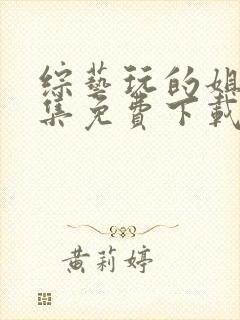 综艺玩的姐
集免费下载
黄莉婷